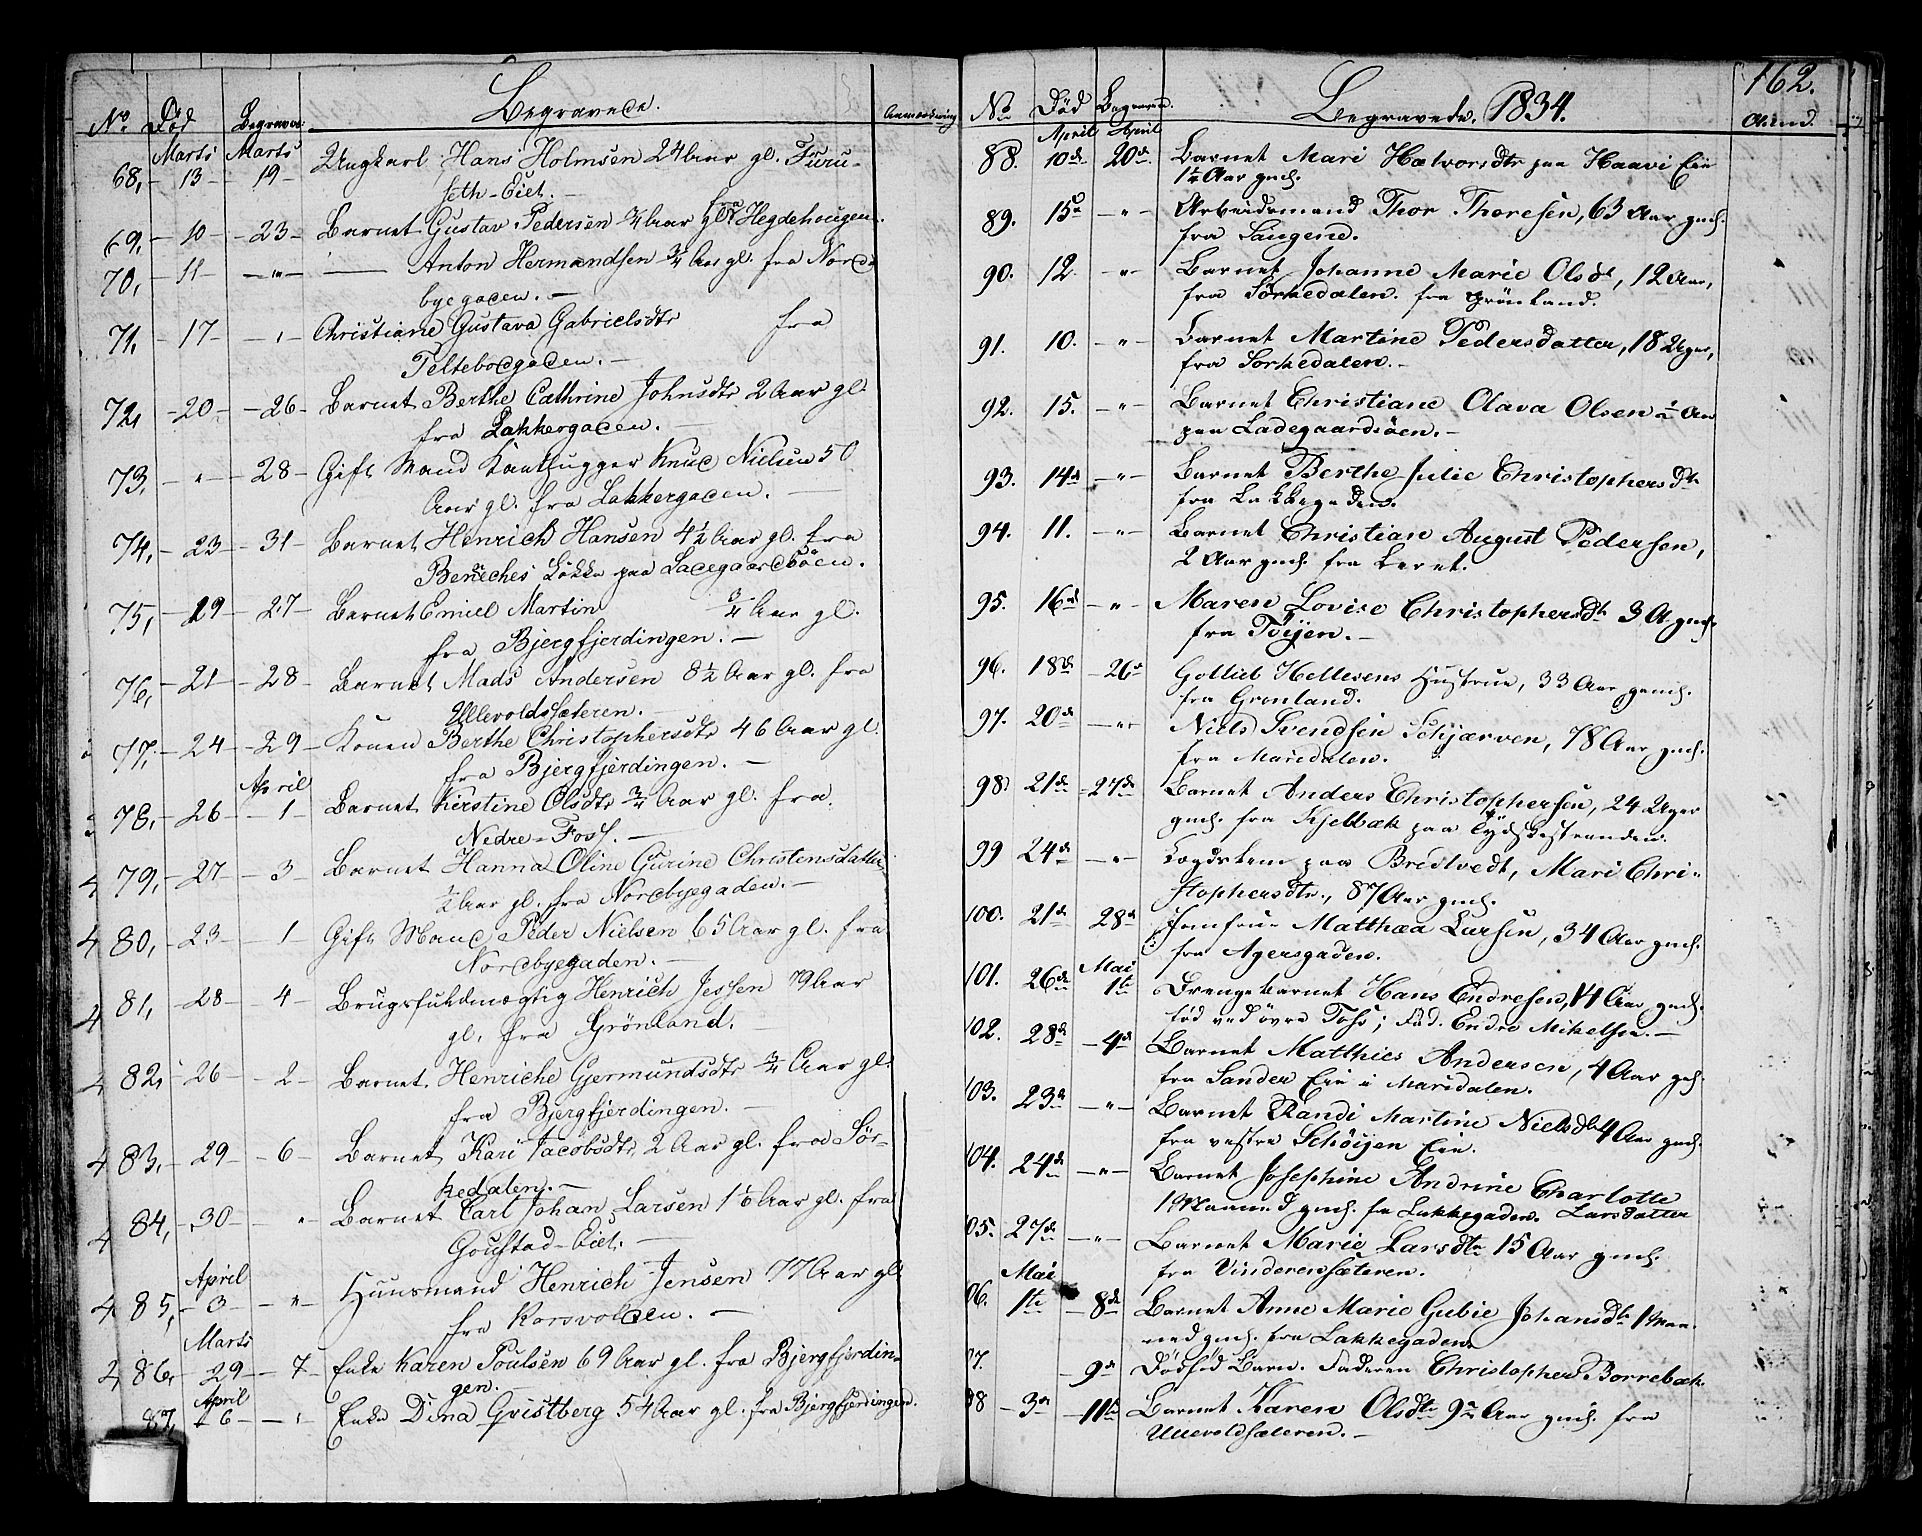 Begravede.
No Död Begravne Anmærkning
Marts Marts
68, 13 19 Ungkarl Hans Holmsen 24 Aar gl. Furu-
seth-Eiet. —
69, 10 23 Barnet Gustav Pedersen 3/4 Aar gl. fra Hegdehougen.
70, 11 — " — — Anton Hermandsen 3/4 Aar gl. fra Nord-
byegaden. —
71, 17 " Christiane Gustava Gabrielsdtr fra
Telteborgaden. —
72, 20 26 Barnet Berthe Cathrine Johnsdtr 2 Aar gl.
fra Lakkergaden. —
73, " 28 Gift Mand Knud Nielsen 50
Aar gl. fra Lakkergaden. —
74, 23 31 Barnet Henrich Hansen 4½ Aar gl. fra
Beneches Lökke paa Ladegaardsöen.
75, 19 27 Barnet Emiel Martin 3/4 Aar gl.
fra Bjergfjerdingen. —
76, 21 28 Barnet Mads Andersen 8½ Aar gl. fra
Ullevoldssæteren. —
77, 24 29 Konen Berthe Christophersdtr 46 Aar gl.
fra Bjergfjerdingen. —
April
78, 26 1 Barnet Kirstine Olsdtr 3/4 Aar gl. fra
Nedre-Foss. —
79, 27 3 Barnet Hanna Oline Gurine Christensdatter
½ Aar gl. fra Nordbyegaden. —
4 80, 23 1 Gift Mand Peder Nielsen 65 Aar gl. fra
Nordbyegaden. —
4 81, 28 4 Brugsfuldmægtig Henrich Jessen 79 Aar
gl. fra Grönland. —
4 82, 26 2 Barnet Henriche Gjermundsdtr 3/4 Aar gl.
fra Bjergfjerdingen. —
4 83, 29 6 Barnet Kari Jacobsdtr 2 Aar gl. fra Sör-
kedalen. —
4 84, 30 " Barnet Carl Johan Larsen 1½ Aar gl. fra
Goustad-Eiet. —
April
4 85, 3 " Huusmand Henrich Jensen 77 Aar gl.
fra Korsvolden. —
Marts
86, 29 7 Enke Karen Poulsen 69 Aar gl. fra Bjergfjerdin-
gen. —
April
87, 6 " Enke Dina Qvistberg 54 Aar gl. fra Bjergfjerdingen.
162.
No Död Begravne Begravede. 1834.
April April
88. 10de 20de Barnet Mari Halvorsdtr paa Haavi Eie
1¼ Aar gml.
89. 15de — " — Arbeidsmand Thor Thoresen, 63 Aar gml.
fra Saugene.
90. 12 " Barnet Johanne Marie Olsdt, 12 Aar,
fra Sörkedalen. fra Grönland.
91. 10. — " — Barnet Martine Pedersdatter, 18 Uger,
fra Sorkedalen. —
92. 15. — " — Barnet Christiane Olava Olsen ½ Aar
paa Ladegaardsöen. —
93. 14de — " — Barnet Berthe Julie Christophersdt
fra Lakkegaden.
94. 11. — " — Barnet Christian August Pedersen,
2 Aar gml. fra Leret.
95. 16de — " — Maren Lovise Christophersdt 3 A gml.
fra Töijen. —
96. 18de 26de Gottlieb Hellesens Hustrue, 33 Aar gml.
fra Grønland.
97. 20de — " — Niels Svendsen Schjærven, 78 Aar gml.
fra Maridalen.
98. 21de 27de Barnet Anders Christophersen, 24 Uger
gml. fra Kjelbæk paa Tydskestranden.
99 24de — " — Lægdslem paa Bredtvedt, Mari Chri-
stophersdtr, 87 Aar gml.
100. 21de 28de Jomfrue Matthæa Larsen, 34 Aar gml.
fra Agersgaden.
Mai
101. 26de 1te Drengebarnet Hans Endresen, 14 Aar gml.
född ved övre Foss; Fad. Endre Mikelsen. —
102. 28de 4de Barnet Matthies Andersen, 4 Aar gml.
fra Sander Eie i Maridalen.
103. 23de — " — Barnet Randi Martine Nielsdtr 4 Aar gml.
fra vestre Schöijen Eie.
104. 24de — " — Barnet Josephine Andrine Charlotte
1 Maaned gml. fra Lakkegaden. Larsdatter
05. 27de — " — Barnet Marie Larsdtr 15 Aar gml.
fra Vinderenssæteren.
Mai
06. 1te 8de Barnet Anne Marie Gubie Johansdtr 1 Maa-
ned gml. fra Lakkegaden
07. 9de Dödföd Barn. Faderen Christopher Borrebæk.
08 3de 11te Barnet Karen Olsdtr 9½ Aar gml. fra
Ullevoldsæteren. —